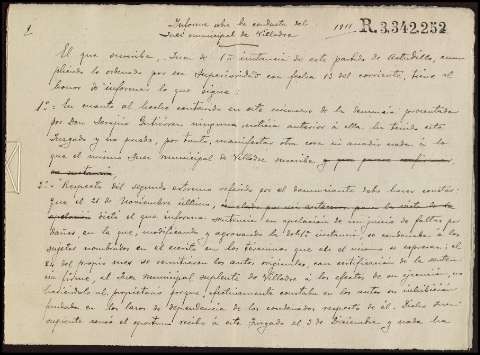 1
Informe sobre la conducta del
Juez municipal de Villodre
1911. R.3.342.252
El que suscribe, Juez de 1ª instancia de este partido de Astudillo, cum
pliendo lo ordenado por esa Superioridad con fecha 13 del corriente, tiene el
honor de informar lo que sigue:
1º.= En cuanto al hecho contenido en este número de la denuncia presentada
por Don Gutiérrez ninguna noticia anterior a ella ha tenido este
Juzgado y no puede, por tanto, manifestar otra cosa ni añadir nada á lo
que el mismo Juez municipal de Villodre suscribe, y que parece confirmar
su
2º.= Respecto del segundo extremo referido por el denunciante debo hacer constar:
que el 21 de Noviembre último, señalado por ser anterior para la vista de la
apelación dictó el que informa sentencia en apelación de un juicio de faltas por
daños en la que, modificando y agravando la de 1ª instancia, se condenaba á los
sujetos nombrados en el escrito en los términos que en el mismo se expresan; el
24 del propio mes se remitieron los autos originales con certificación de la senten
cia firme, al Juez municipal suplente de Villodre á los efectos de su ejecución, no
haciéndolo al propietario porque efectivamente constaba en los autos su inhibición
fundada en los lazos de dependencia de los condenados respecto de él. Dicho
suplente acusó el oportuno recibo á este Juzgado el 3 de Diciembre y nada ha